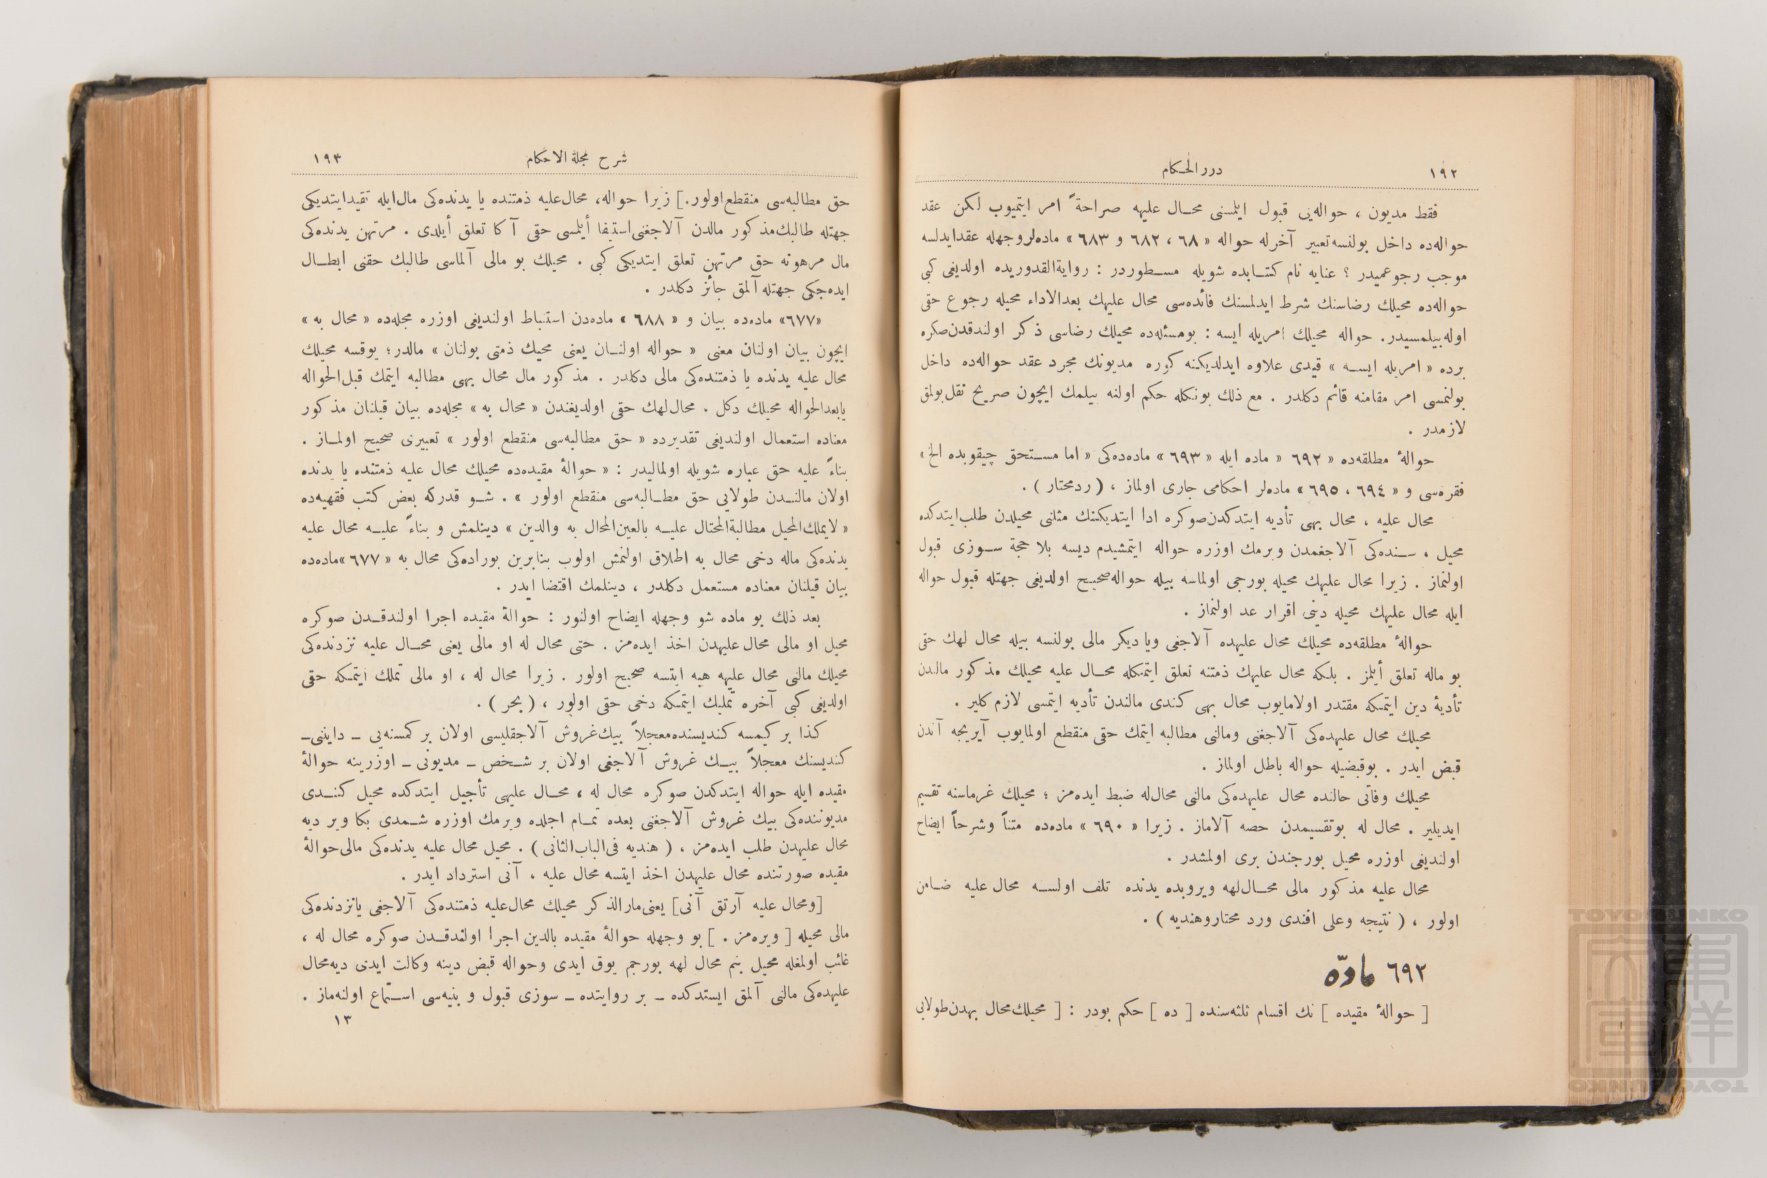 ١٩٢
درر الحكام
فقط مديون ، حواله‌يى قبول ايلمسنى محال عليهه صراحةً امر ايتميوب لكن عقد
حواله‌ده داخل بولنسه تعبير آخرله حواله « ٦٨ ، ٦٨٢ و ٦٨٣ » ماده‌لر وجهله عقد ايدلسه
موجب رجوعميدر ؟ عنايه نام كتابده شويله مسطوردر : رواية القدوريده اولديغى كبى
حواله‌ده محيلك رضاسنك شرط ايدلمسنك فائده‌سى محال عليهك بعد الاداء محيله رجوع حقى
اوله‌بيلمسيدر. حواله محيلك امريله ايسه : بومسئله‌ده محيلك رضاسى ذكر اولندقدن صكره
برده « امريله ايسه » قيدى علاوه ايدلديكنه كوره مديونك مجرد عقد حواله‌ده داخل
بولنمسى امر مقامنه قائم دكلدر . مع ذلك بونكله حكم اولنه بيلمك ايچون صريح نقل بولمق
لازمدر .
حوالهٔ مطلقه‌ده « ٦٩٢ « ماده ايله « ٦٩٣ » ماده‌ده‌كى « اما مستحق چيقوبده الخ »
فقره‌سى و « ٦٩٤ ، ٦٩٥ » ماده‌لر احكامى جارى اولماز ، ( ردمحتار ) .
محال عليه ، محال بهى تأديه ايتدكدن‌صوكره ادا ايتديكنك مثلنى محيلدن طلب‌ايتدكده
محيل ، سنده‌كى آلاجغمدن ويرمك اوزره حواله ايتمشيدم ديسه بلا حجة سوزى قبول
اولنماز . زيرا محال عليهك محيله بورجى اولماسه بيله حواله صحيح اولديغى جهتله قبول حواله
ايله محال عليهك محيله دينى اقرار عد اولنماز .
حوالهٔ مطلقه‌ده محيلك محال عليهده آلاجغى ويا ديكر مالى بولنسه بيله محال لهك حقى
بو ماله تعلق أيلمز . بلكه محال عليهك ذمتنه تعلق ايتمكله محال عليه محيلك مذكور مالندن
تأديهٔ دين ايتمكه مقتدر اولامايوب محال بهى كندى مالندن تأديه ايتمسى لازم كلير .
محيلك محال عليهده‌كى آلاجغنى ومالنى مطالبه ايتمك حقى منقطع اولمايوب آيريجه آندن
قبض ايدر . بوقبضيله حواله باطل اولماز .
محيلك وفاتى حالنده محال عليهده‌كى مالنى محال‌له ضبط ايده‌مز ؛ محيلك غرماسنه تقسيم
ايديلير . محال له بوتقسيمدن حصه آلاماز . زيرا « ٦٩٠ » ماده‌ده متناً وشرحاً ايضاح
اولنديغى اوزره محيل بورجندن برى اولمشدر .
محال عليه مذكور مالى محال‌لهه ويروبده يدنده تلف اولسه محال عليه ضامن
اولور ، ( نتيجه وعلى افندى ورد محتار وهنديه ) .
٦٩٢ مادّه
[ حوالهٔ مقيده ] نك اقسام ثلثه‌سنده [ ده ] حكم بودر : [ محيلك محال بهدن طولايى
شرح مجلة الاحكام
١٩٣
حق مطالبه‌سى منقطع اولور.] زيرا حواله، محال‌عليه ذمتنده يا يدنده‌كى مال‌ايله تقيد ايتديكى
جهتله طالبك مذكور مالدن آلاجغنى استيفا أيلمسى حقى آكا تعلق أيلدى . مرتهن يدنده‌كى
مال مرهونه حق مرتهن تعلق ايتديكى كبى . محيلك بو مالى آلماسى طالبك حقنى ابطال
ايده‌جكى جهتله آلمق جائز دكلدر .
«٦٧٧» ماده‌ده بيان و « ٦٨٨ » ماده‌دن استنباط اولنديغى اوزره مجله‌ده « محال به »
ايچون بيان اولنان معنى « حواله اولنان يعنى محيلك ذمتى بولنان » مالدر؛ يوقسه محيلك
محال عليه يدنده يا ذمتنده‌كى مالى دكلدر . مذكور مال محال بهى مطالبه ايتمك قبل الحواله
يابعدالحواله محيلك دكل . محال‌لهك حقى اولديغندن « محال به » مجله‌ده بيان قيلنان مذكور
معناده استعمال اولنديغى تقديرده « حق مطالبه‌سى منقطع اولور » تعبيرى صحيح اولماز .
بناءً عليه حق عباره شويله اولماليدر : « حوالهٔ مقيده‌ده محيلك محال عليه ذمتنده يا يدنده
اولان مالندن طولايى حق مطالبه‌سى منقطع اولور » . شو قدركه بعض كتب فقهيه‌ده
« لايملك المحيل مطالبة المحتال عليه بالعين المحال به والدين » دينلمش و بناءً عليه محال عليه
يدنده‌كى ماله دخى محال به اطلاق اولنمش اولوب بنابرين بوراده‌كى محال به « ٦٧٧ »ماده‌ده
بيان قيلنان معناده مستعمل دكلدر ، دينلمك اقتضا ايدر .
بعد ذلك بو ماده شو وجهله ايضاح اولنور : حوالهٔ مقيده اجرا اولندقدن صوكره
محيل او مالى محال عليهدن اخذ ايده‌مز . حتى محال له او مالى يعنى محال عليه نزدنده‌كى
محيلك مالنى محال عليهه هبه ايتسه صحيح اولور . زيرا محال له ، او مالى تملك ايتمكه حقى
اولديغى كبى آخره تمليك ايتمكه دخى حقى اولور ، ( بحر ) .
كذا بر كيمسه كنديسنده معجلاً بيك غروش آلاجقليسى اولان بر كمسنه‌يى ـ داينى ـ
كنديسنك معجلاً بيك غروش آلاجغى اولان بر شخص ـ مديونى ـ اوزرينه حوالهٔ
مقيده ايله حواله ايتدكدن صوكره محال له ، محال عليهى تأجيل ايتدكده محيل كندى
مديونندەكى بيك غروش آلاجغنى بعده تمام اجلده ويرمك اوزره شمدى بكا وير ديه
محال عليهدن طلب ايده‌مز ، ( هنديه فى الباب الثانى ) . محيل محال عليه يدنده‌كى مالى حوالهٔ
مقيده صورتنده محال عليهدن اخذ ايتسه محال عليه ، آنى استرداد ايدر .
[ومحال عليه آرتق آنى] يعنى مارالذكر محيلك محال‌عليه ذمتنده‌كى آلاجغى يانزدنده‌كى
مالى محيله [ ويره‌مز . ] بو وجهله حوالهٔ مقيده بالدين اجرا اولندقدن صوكره محال له ،
غائب اولمغله محيل بنم محال لهه بورجم يوق ايدى وحواله قبض دينه وكالت ايدى ديه محال
عليهده‌كى مالنى آلمق ايستدكده ـ بر روايتده ـ سوزى قبول و بنيه‌سى استماع اولنه‌ماز .
١٣
TOYO BUNKO
東洋文庫
TOYO BUNKO